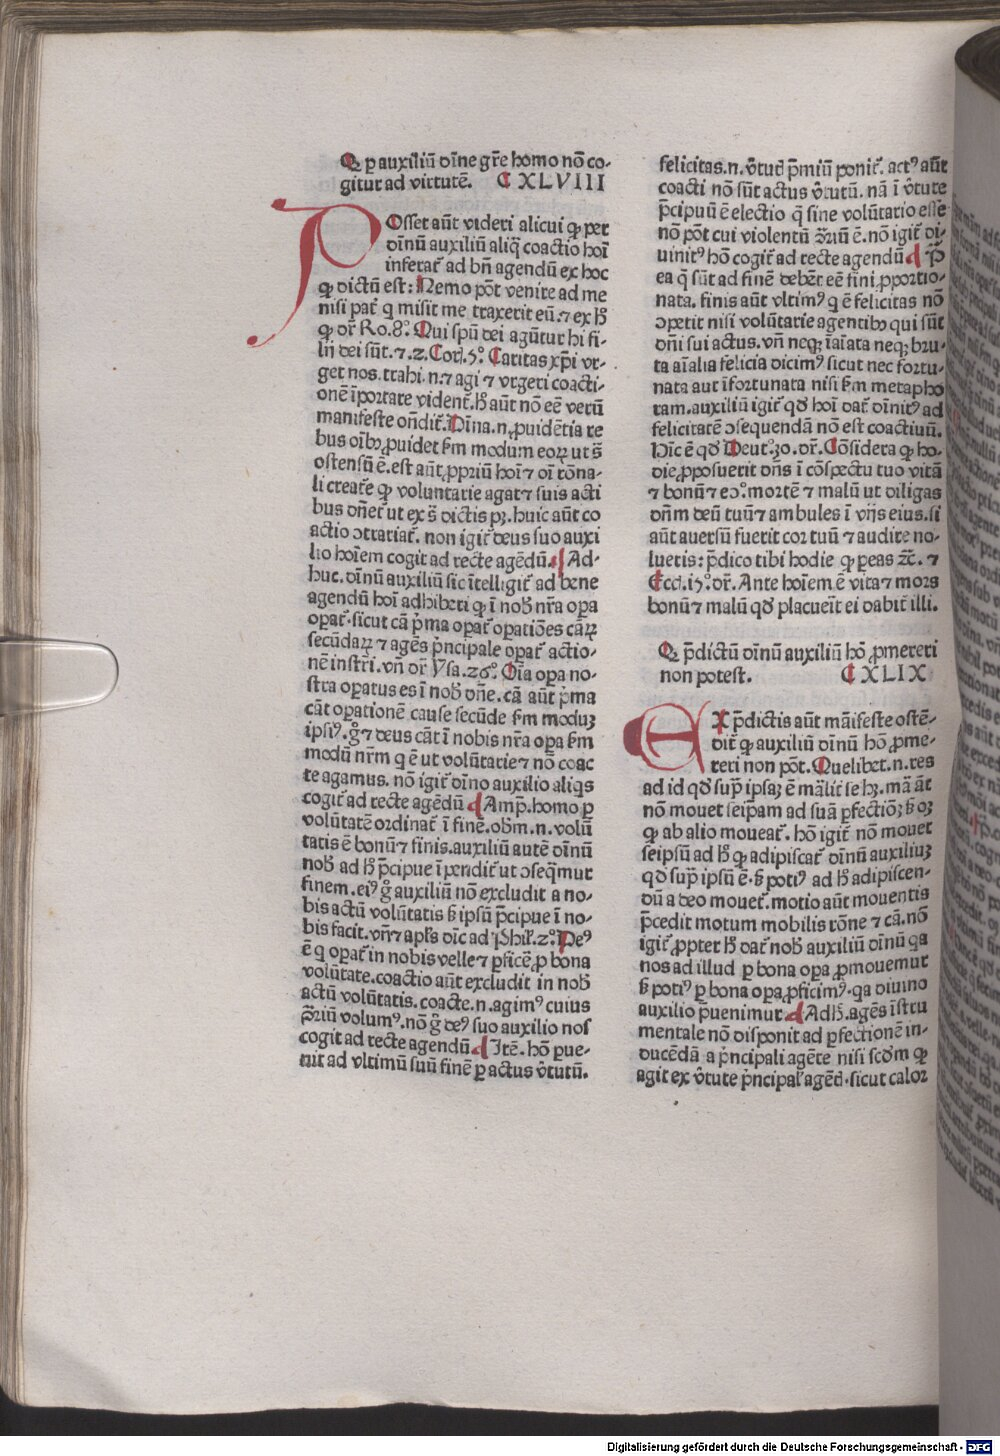 Q̨ ꝑ auxiliū dīne gr̄e homo nō co-
gitur ad virtutē. CXLVIII
POsset aūt videri alicui ꝙ per
dīnū auxiliū aliq̄ coactio hoi
inferat᷑ ad bn̄ agendū ex hoc
ꝙ dictū est: Nemo pōt venire ad me
nisi pat᷑ q misit me traxerit eū. ⁊ ex hͦ
ꝙ dr̄ Ro. 8.° Qui spū dei agūtur hi fi-
lii dei sūt. ⁊. 2. Cor. 5.° Caritas xp̄i vr-
get nos. trahi. n. ⁊ agi ⁊ vrgeri coacti-
onē īportare vident᷑. hͦ aūt nō eē verū
manifeste ondit᷑. Dīna. n. ꝓuidētia re
bus oīb; ꝓuidet fm modum eoꝝ ut s̄
ostensū ē. est aūt ꝓpriū hoi ⁊ oi rōna-
li creat̄e ꝙ voluntarie agat ⁊ suis acti
bus dn̄et᷑ ut ex s̄ dictis pꝫ. huic aūt co
actio ꝯtrariat᷑. non igit᷑ deus suo auxi
lio hoīem cogit ad recte agēdū. ¶ Ad-
huc. dīnū auxiliū sic ītelligit᷑ ad bene
agendū hoi adhiberi ꝙ ī nob̄ nr̄a opa
opat᷑. sicut cā p̄ma opat᷑ opatiōes cāꝝ
secūdaꝝ ⁊ agēs p̄ncipale opat᷑ actio-
nē instri. vn̄ dr̄ Ysa. 26.° Oīa opa no-
stra opatus es ī nob̄ dn̄e. cā aūt p̄ma
cāt opationē cause secūde fm moduꝫ
ipsiꝰ. g° ⁊ deus cāt ī nobis nr̄a opa fm
modū nr̄m q ē ut volūtarie ⁊ nō coac
te agamus. nō igit᷑ dīno auxilio aliqs
cogit᷑ ad recte agēdū ¶ Amp̄. homo ꝑ
volūtatē ordinat᷑ ī finē. obm. n. volū
tatis ē bonū ⁊ finis. auxiliū autē dīnū
nob̄ ad hͦ p̄cipue īpendit᷑ ut ꝯseq̄mur
finem. eiꝰ g° auxiliū nō excludit a no-
bis actū volūtatis sꝫ ipsū p̄cipue ī no-
bis facit. vn̄ ⁊ apl̄s dīc ad Phil'. 2.° Deꝰ
ē q opat᷑ in nobis velle ⁊ ꝑficē ꝓ bona
volūtate. coactio aūt excludit in nob̄
actū volūtatis. coacte. n. agimꝰ cuius
ꝯ̄riū volumꝰ. nō g° deꝰ suo auxilio nos
cogit ad recte agendū ¶ Itē. hō ꝑue-
nit ad vltimū suū finē ꝑ actus v̄tutū.
felicitas. n. v̄tutꝭ p̄miū ponit᷑. actꝰ aūt
coacti nō sūt actus v̄tutū. nā ī v̄tute
p̄cipuū ē electio q̄ sine volūtario esse
nō pōt cui violentū ꝯ̄riū ē. nō igit᷑ di-
uinitꝰ hō cogit᷑ ad recte agendū ¶ P̄
ea q̄ sūt ad finē debēt eē fini ꝓportio-
nata. finis aūt vltimꝰ q ē felicitas nō
ꝯpetit nisi volūtarie agentibꝫ qui sūt
dn̄i sui actus. vn̄ neqꝫ īaīata neqꝫ bru-
ta aīalia felicia dicimꝰ sicut nec fortu-
nata aut īfortunata nisi fm metapho
ram. auxiliū igit᷑ qd̄ hoi dat᷑ dīnitꝰ ad
felicitatē ꝯsequendā nō est coactiuū.
Hīc ē qd̄ Deut.° 30. dr̄. Cōsidera ꝙ ho-
die ꝓposuerit dn̄s ī cōspectu tuo vitā
⁊ bonū ⁊ eꝯ.° mortē ⁊ malū ut diligas
dn̄m deū tuū ⁊ ambules ī viis eius. si
aūt auersū fuerit cor tuū ⁊ audire no-
lueris: p̄dico tibi hodie ꝙ ꝑeas ⁊c̄. ⁊
Ecci. 15.° dr̄. Ante hoīem ē vita ⁊ mors
bonū ⁊ malū qd̄ placueīt ei dabit᷑ illi.
Q̨ p̄dictū dīnū auxiliū hō ꝓmereri
non potest. CXLIX
EX p̄dictis aūt māifeste ostē-
dit᷑ ꝙ auxiliū dīnū hō ꝓme-
reri non pōt. Quelibet. n. res
ad id qd̄ sup̄ ipsaꝫ ē mal̄it᷑ se hꝫ. mā āt
nō mouet seip̄am ad suā ꝑfectiōꝫ sꝫ oꝫ
ꝙ ab alio moueat᷑. hō igit᷑ nō mouet
seipsū ad hͦ ꝙ adipiscat᷑ dīnū auxiliuꝫ
qd̄ sup̄ ipsū ē. sꝫ potiꝰ ad hͦ adipiscen-
dū a deo mouet᷑. motio aūt mouentis
p̄cedit motum mobilis rōne ⁊ cā. nō
igit᷑ ꝓpter hͦ dat᷑ nob̄ auxiliū dīnū qa
nos ad illud ꝑ bona opa ꝓmouemur
sꝫ potiꝰ ꝑ bona opa ꝓficimꝰ. qa diuino
auxilio p̄uenimur ¶ Adh̄. agēs īstru
mentale nō disponit ad ꝑfectionē in-
ducēdā a p̄ncipali agēte nisi scd̄m ꝙ
agit ex v̄tute p̄ncipal' agēt᷑. sicut calor
Digitalisierung gefördert durch die Deutsche Forschungsgemeinschaft - DFG